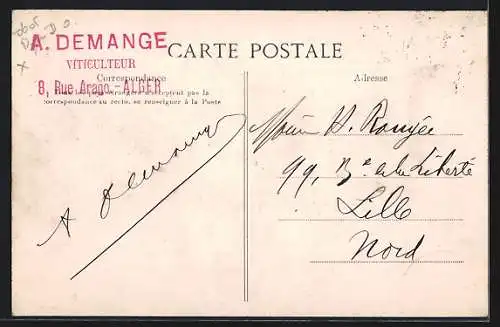 A. DEMANGE
VITICULTEUR
8, Rue Arago. - ALGER
CARTE POSTALE
Correspondance
Tous les pays étrangers n'acceptent pas la
correspondance au recto, se renseigner à la Poste
Adresse
A Demange
H. Rouzée
99, Bd de la Liberté
Lille
Nord